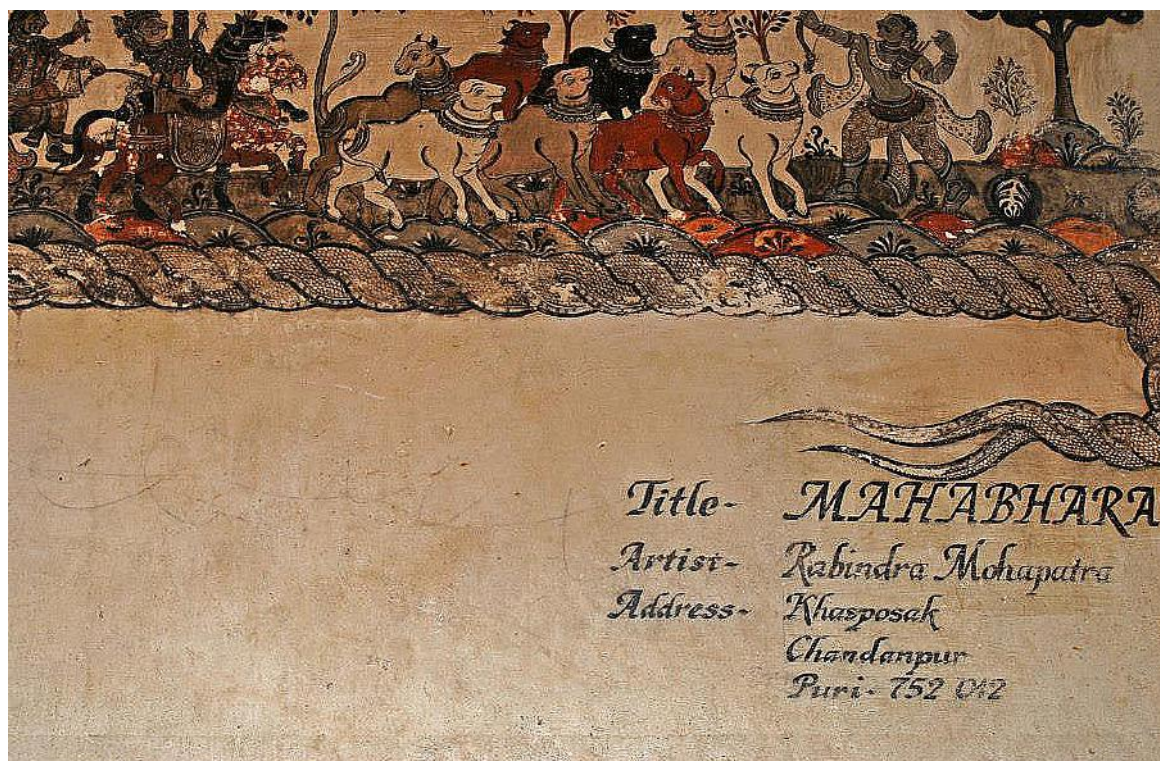 Title- MAHABHARA
Artist- Rabindra Mohapatra
Address- Khasposak
Chandanpur
Puri- 752 012